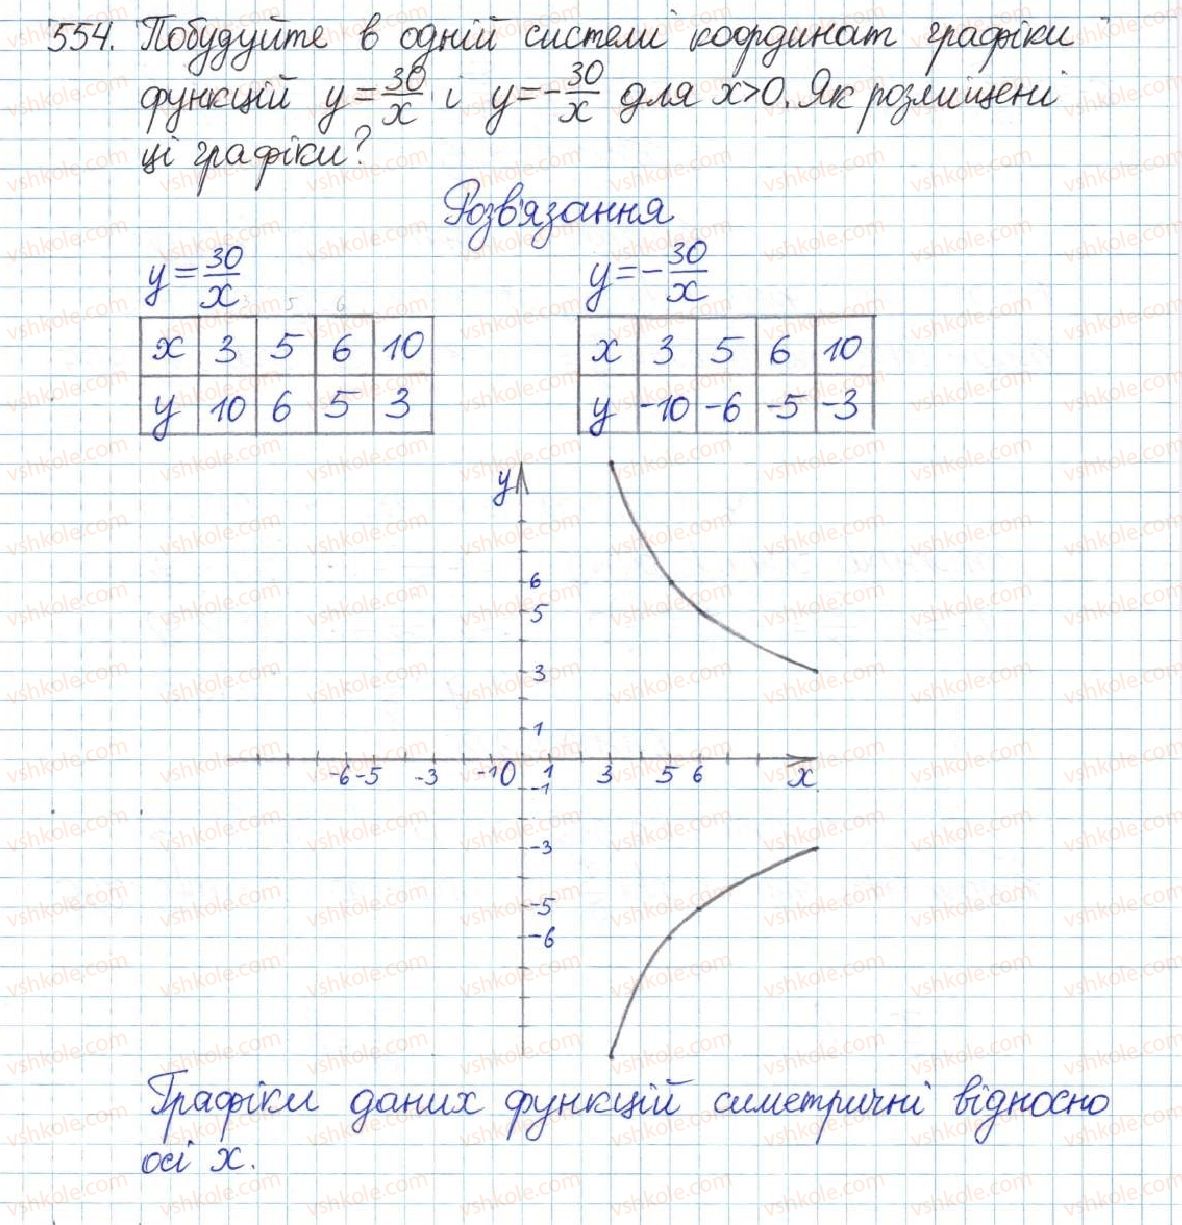 554. Побудуйте в одній системі координат графіки
функцій y=30/x і y=-30/x для x>0. Як розміщені
ці графіки?
Розв'язання
y=30/x
y=-30/x
x 3 5 6 10
y 10 6 5 3
x 3 5 6 10
y -10 -6 -5 -3
y
6
5
3
1
-6 -5 -3 -1 0 1 3 5 6 x
-1
-3
-5
-6
Графіки даних функцій симетричні відносно
осі x.
vshkole.com